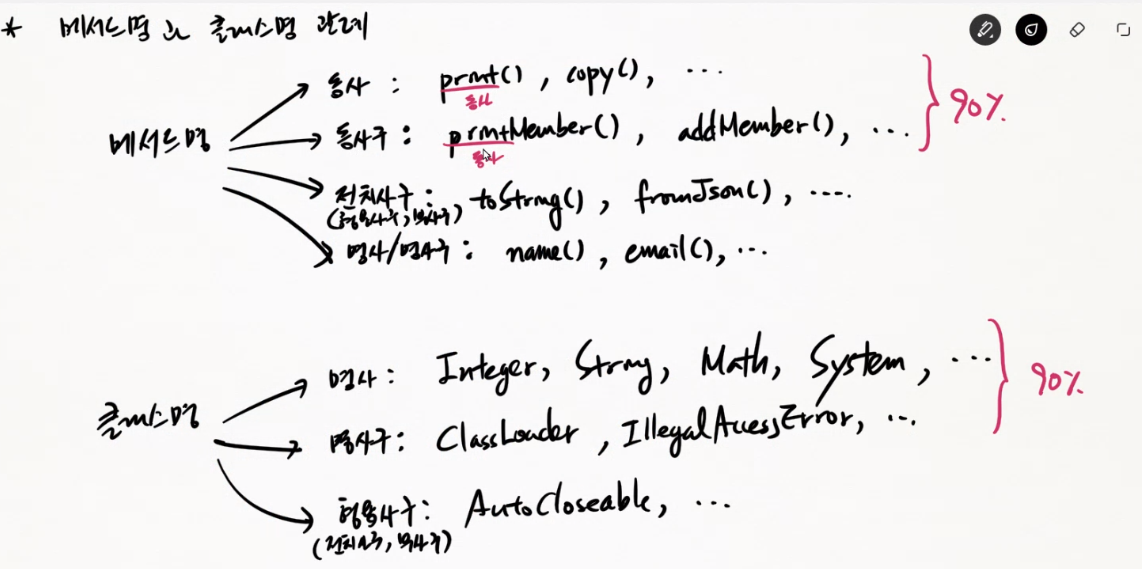 * 메서드명과 클래스명 관례
동사 : print() , copy(), ...
동사
메서드명
동사구 : printMember() , addMember(), ...
동사
90%
전치사구 : toString() , fromJson() , ....
(형용사구, 부사구)
명사/명사구 : name() , email(), ...
명사 : Integer, String, Math, System, ...
클래스명
명사구 : ClassLoader , IllegalAccessError, ...
90%
형용사구 : AutoCloseable, ...
(전치사구, 부사구)